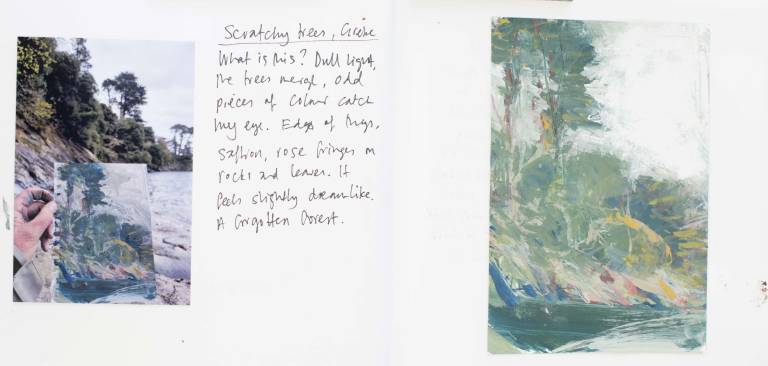 Scratchy trees, Grebe
What is this? Dull light,
the trees merge, odd
pieces of colour catch
my eye. Edges of things,
saffron, rose fringes on
rocks and leaves. It
feels slightly dreamlike.
A forgotten forest.